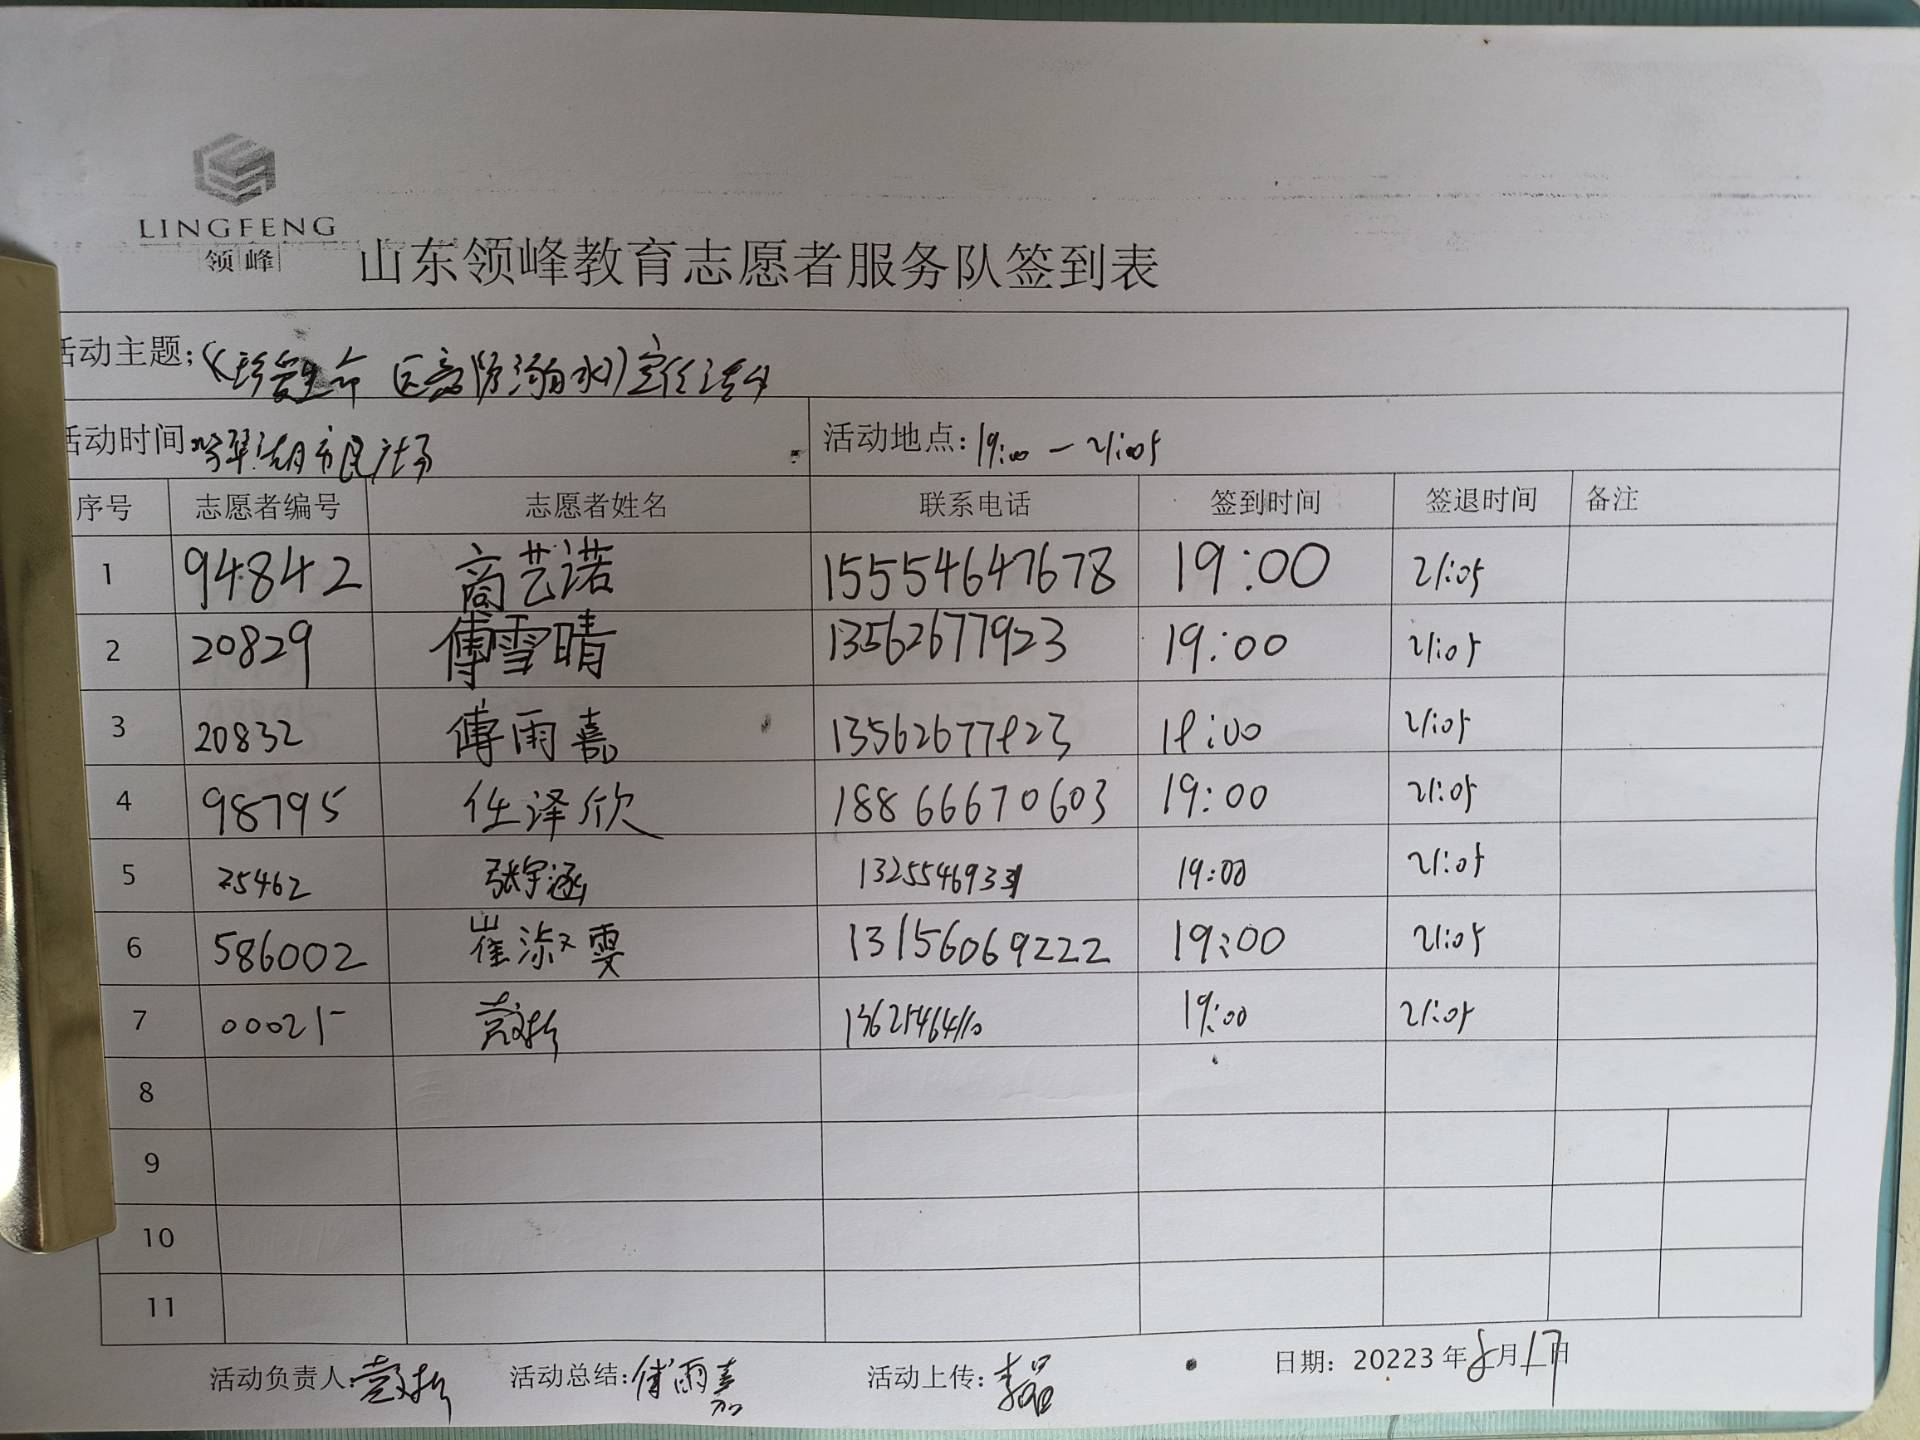 LINGFENG
领峰
山东领峰教育志愿者服务队签到表
活动主题: 《珍爱生命 防溺水》宣传活动
活动时间 湖市民广场 活动地点: 19:00 — 21:05
序号 志愿者编号 志愿者姓名 联系电话 签到时间 签退时间 备注
1 94842 商艺诺 15554647678 19:00 21:05
2 20829 傅雪晴 13562677923 19:00 21:05
3 20832 傅雨嘉 13562677923 19:00 21:05
4 98795 任泽欣 18866670603 19:00 21:05
5 25462 张宇涵 19:00 21:05
6 586002 崔淑雯 13156069222 19:00 21:05
7 00025 19:00 21:05
8
9
10
11
活动负责人: 活动总结: 傅雨嘉 活动上传: 日期: 20223 年 8 月 17 日